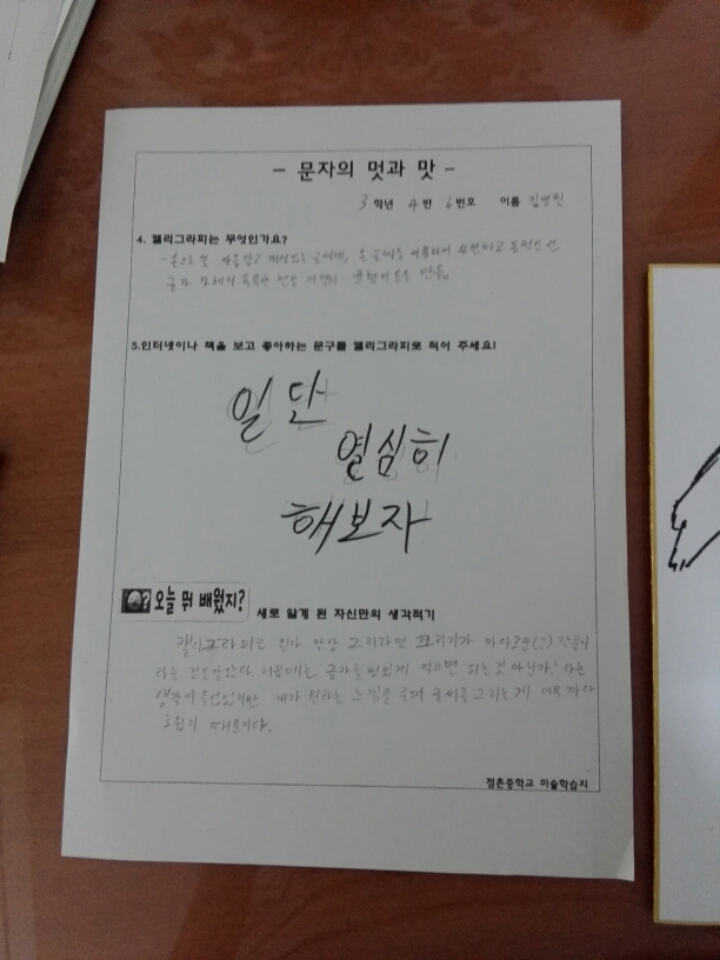 - 문자의 멋과 맛 -
3 학년 4 반 6 번호 이름 김병민
4. 캘리그라피는 무엇인가요?
- 손으로 쓴 아름답고 개성있는 글씨체,
글자 자체의 독특한 번짐 균형미 등을 만듦.
5.인터넷이나 책을 보고 좋아하는 문구를 캘리그라피로 적어 주세요!
일단
열심히
해보자
오늘 뭐 배웠지? 새로 알게 된 자신만의 생각적기
캘리그라피는 뭔가 막상 그리라면 그리기가 까다로운(?) 작품이
라는 것을 알았다. 처음에는 글자를 멋있게 적으면 되는것 아닌가? 라는
생각이 들었었지만 내가 원하는 느낌을 주며 글씨를 그리는게 너무 까다
로웠기 때문이다.
점촌중학교 미술학습지